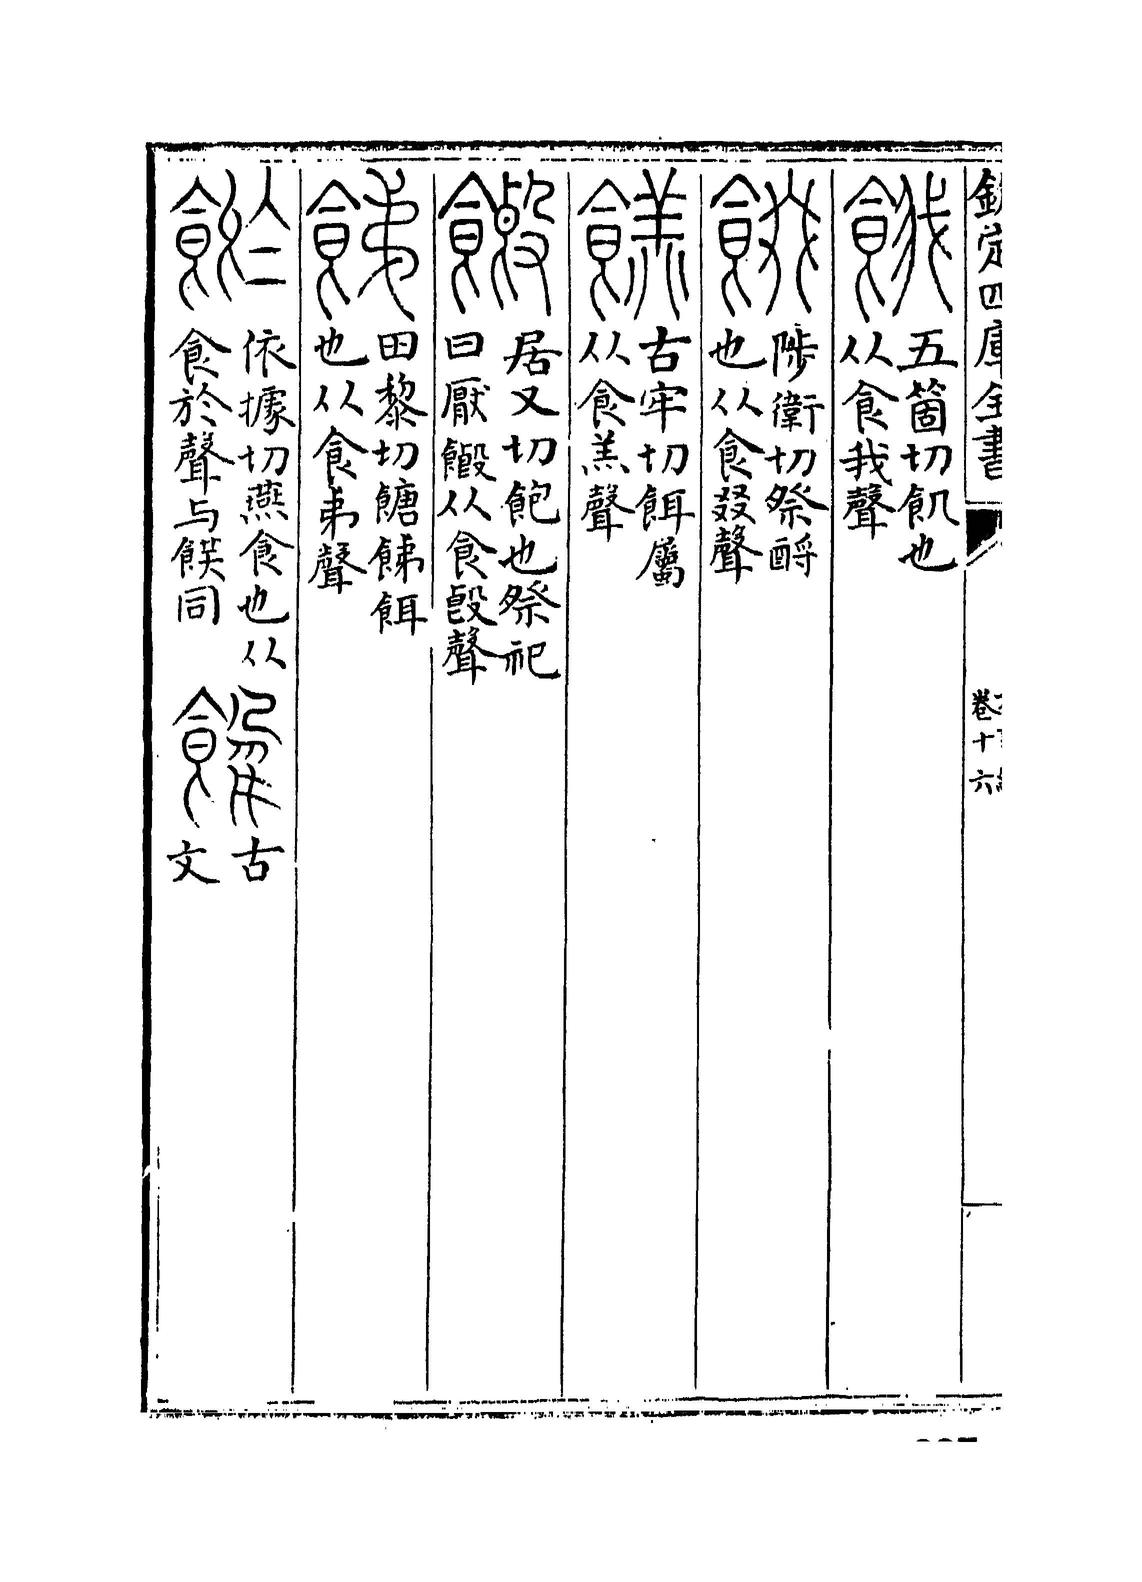 欽定四庫全書
卷十六
餓
五箇切飢也
从食我聲
餟
陟衛切祭酹
也从食叕聲
餻
古牢切餌屬
从食羔聲
居又切飽也祭祀
曰厭 从食𣪘聲
田黎切餹 餌
也从食弟聲
依據切燕食也从
食於聲与 同
古
文